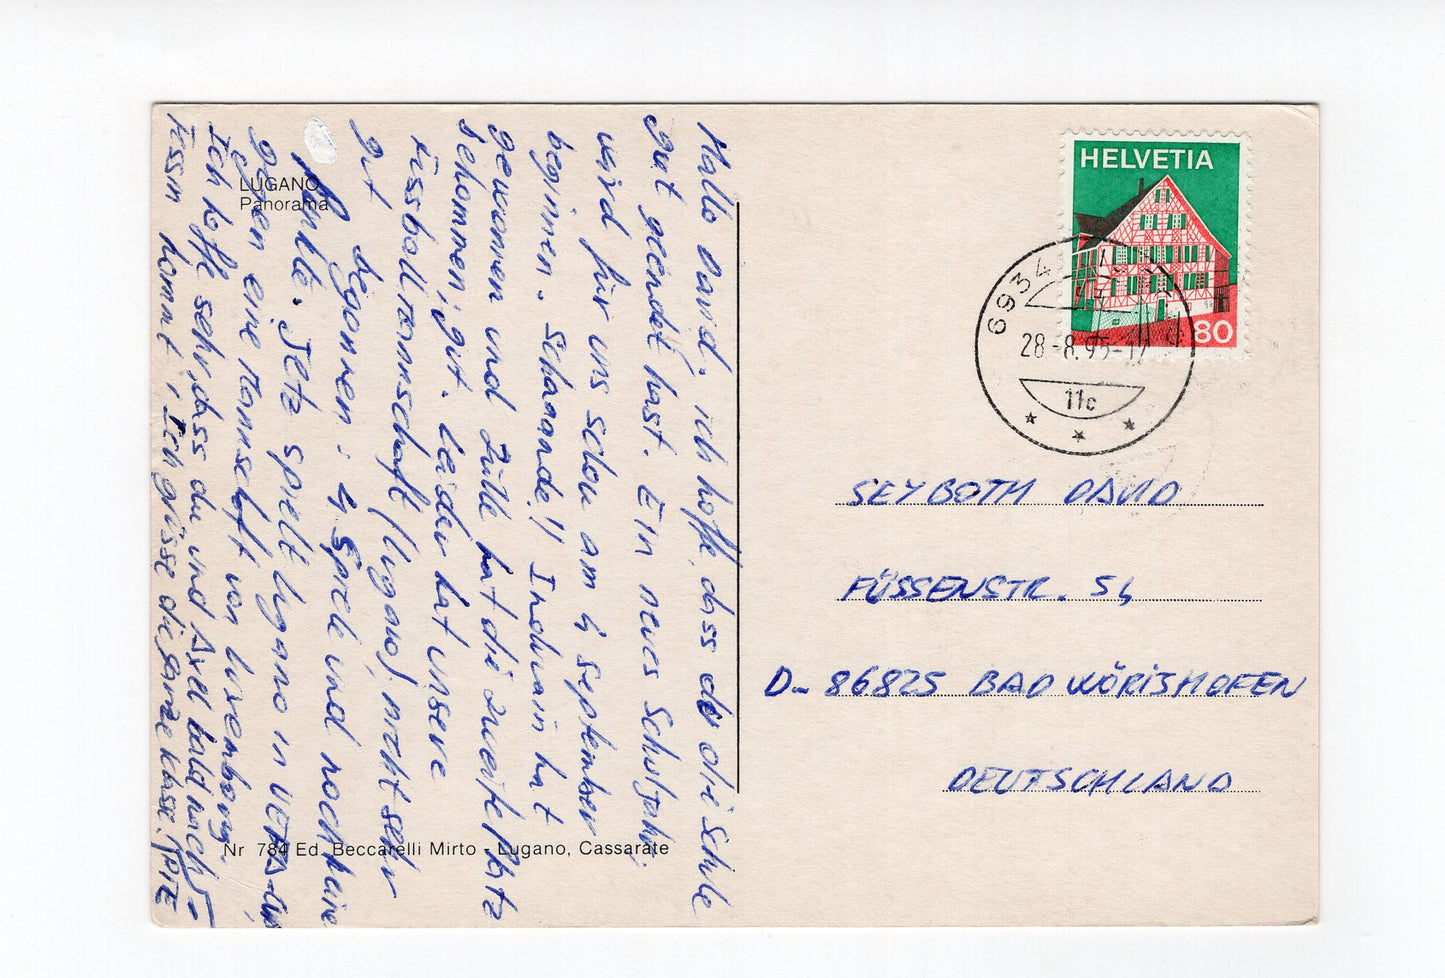 LUGANO
Panorama
Hallo David. ich hoffe, dass du die Schule
gut geendet hast. Ein neues Schuljahr
wird für uns schon am 4 September
beginnen. Schaaande!! Indurain hat
gewonnen und Zülle hat die zweite Platz
gekommen; gut. leider hat unsere
Fussballmannschaft (lugano) nicht sehr
gut begonnen: 4 Spiele und noch keine
Punkte. Jetz spielt lugano in UEFA-Cup
gegen eine Mannschaft von luxenbourg.
Ich hoffe sehr, dass du und Axel bald nach
Tessin kommt, Ich grüsse die ganze Klasse!
Nr 784 Ed. Beccarelli Mirto - Lugano, Cassarate
HELVETIA
80
6934
28-8.95-12
11c
SEYBOTH DAVID
FÜSSENSTR. 54
D-86825 BAD WÖRISHOFEN
DEUTSCHLAND